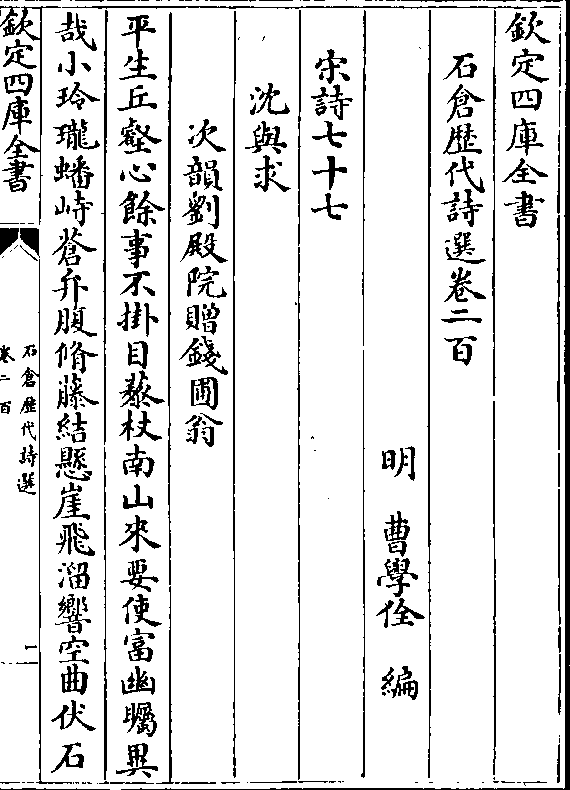 欽定四庫全書
石倉歴代詩選卷二百
明 曹學佺 編
宋詩七十七
沈與求
次韻劉殿院贈錢圃翁
平生丘壑心餘事不掛目藜杖南山來要使富幽矚異
哉小玲瓏蟠峙蒼弁腹脩藤結懸崖飛溜響空曲伏石
欽定四庫全書
石倉歴代詩選
卷二百
一